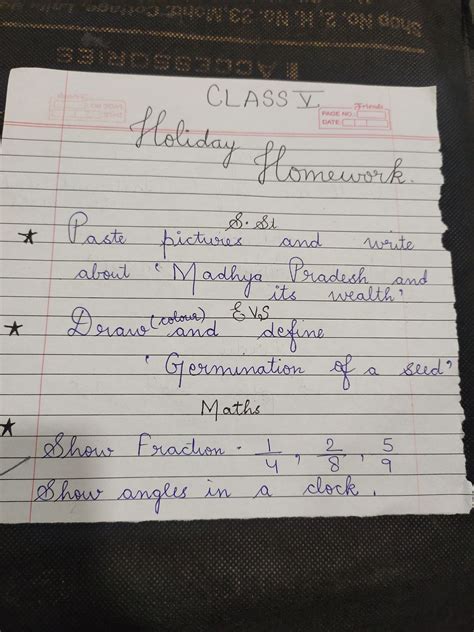 Shop No. 2, H. No. 23, Mohd
ACCESSORIES
CLASS V
Friends
PAGE NO.
DATE
Holiday
Homework.
S.St
★ Paste pictures and write
about 'Madhya Pradesh and
its wealth'
EVS
★ Draw (colour) and define
'Germination of a seed'
Maths
★
Show Fraction - 1/4, 2/8, 5/9
Show angles in a clock.